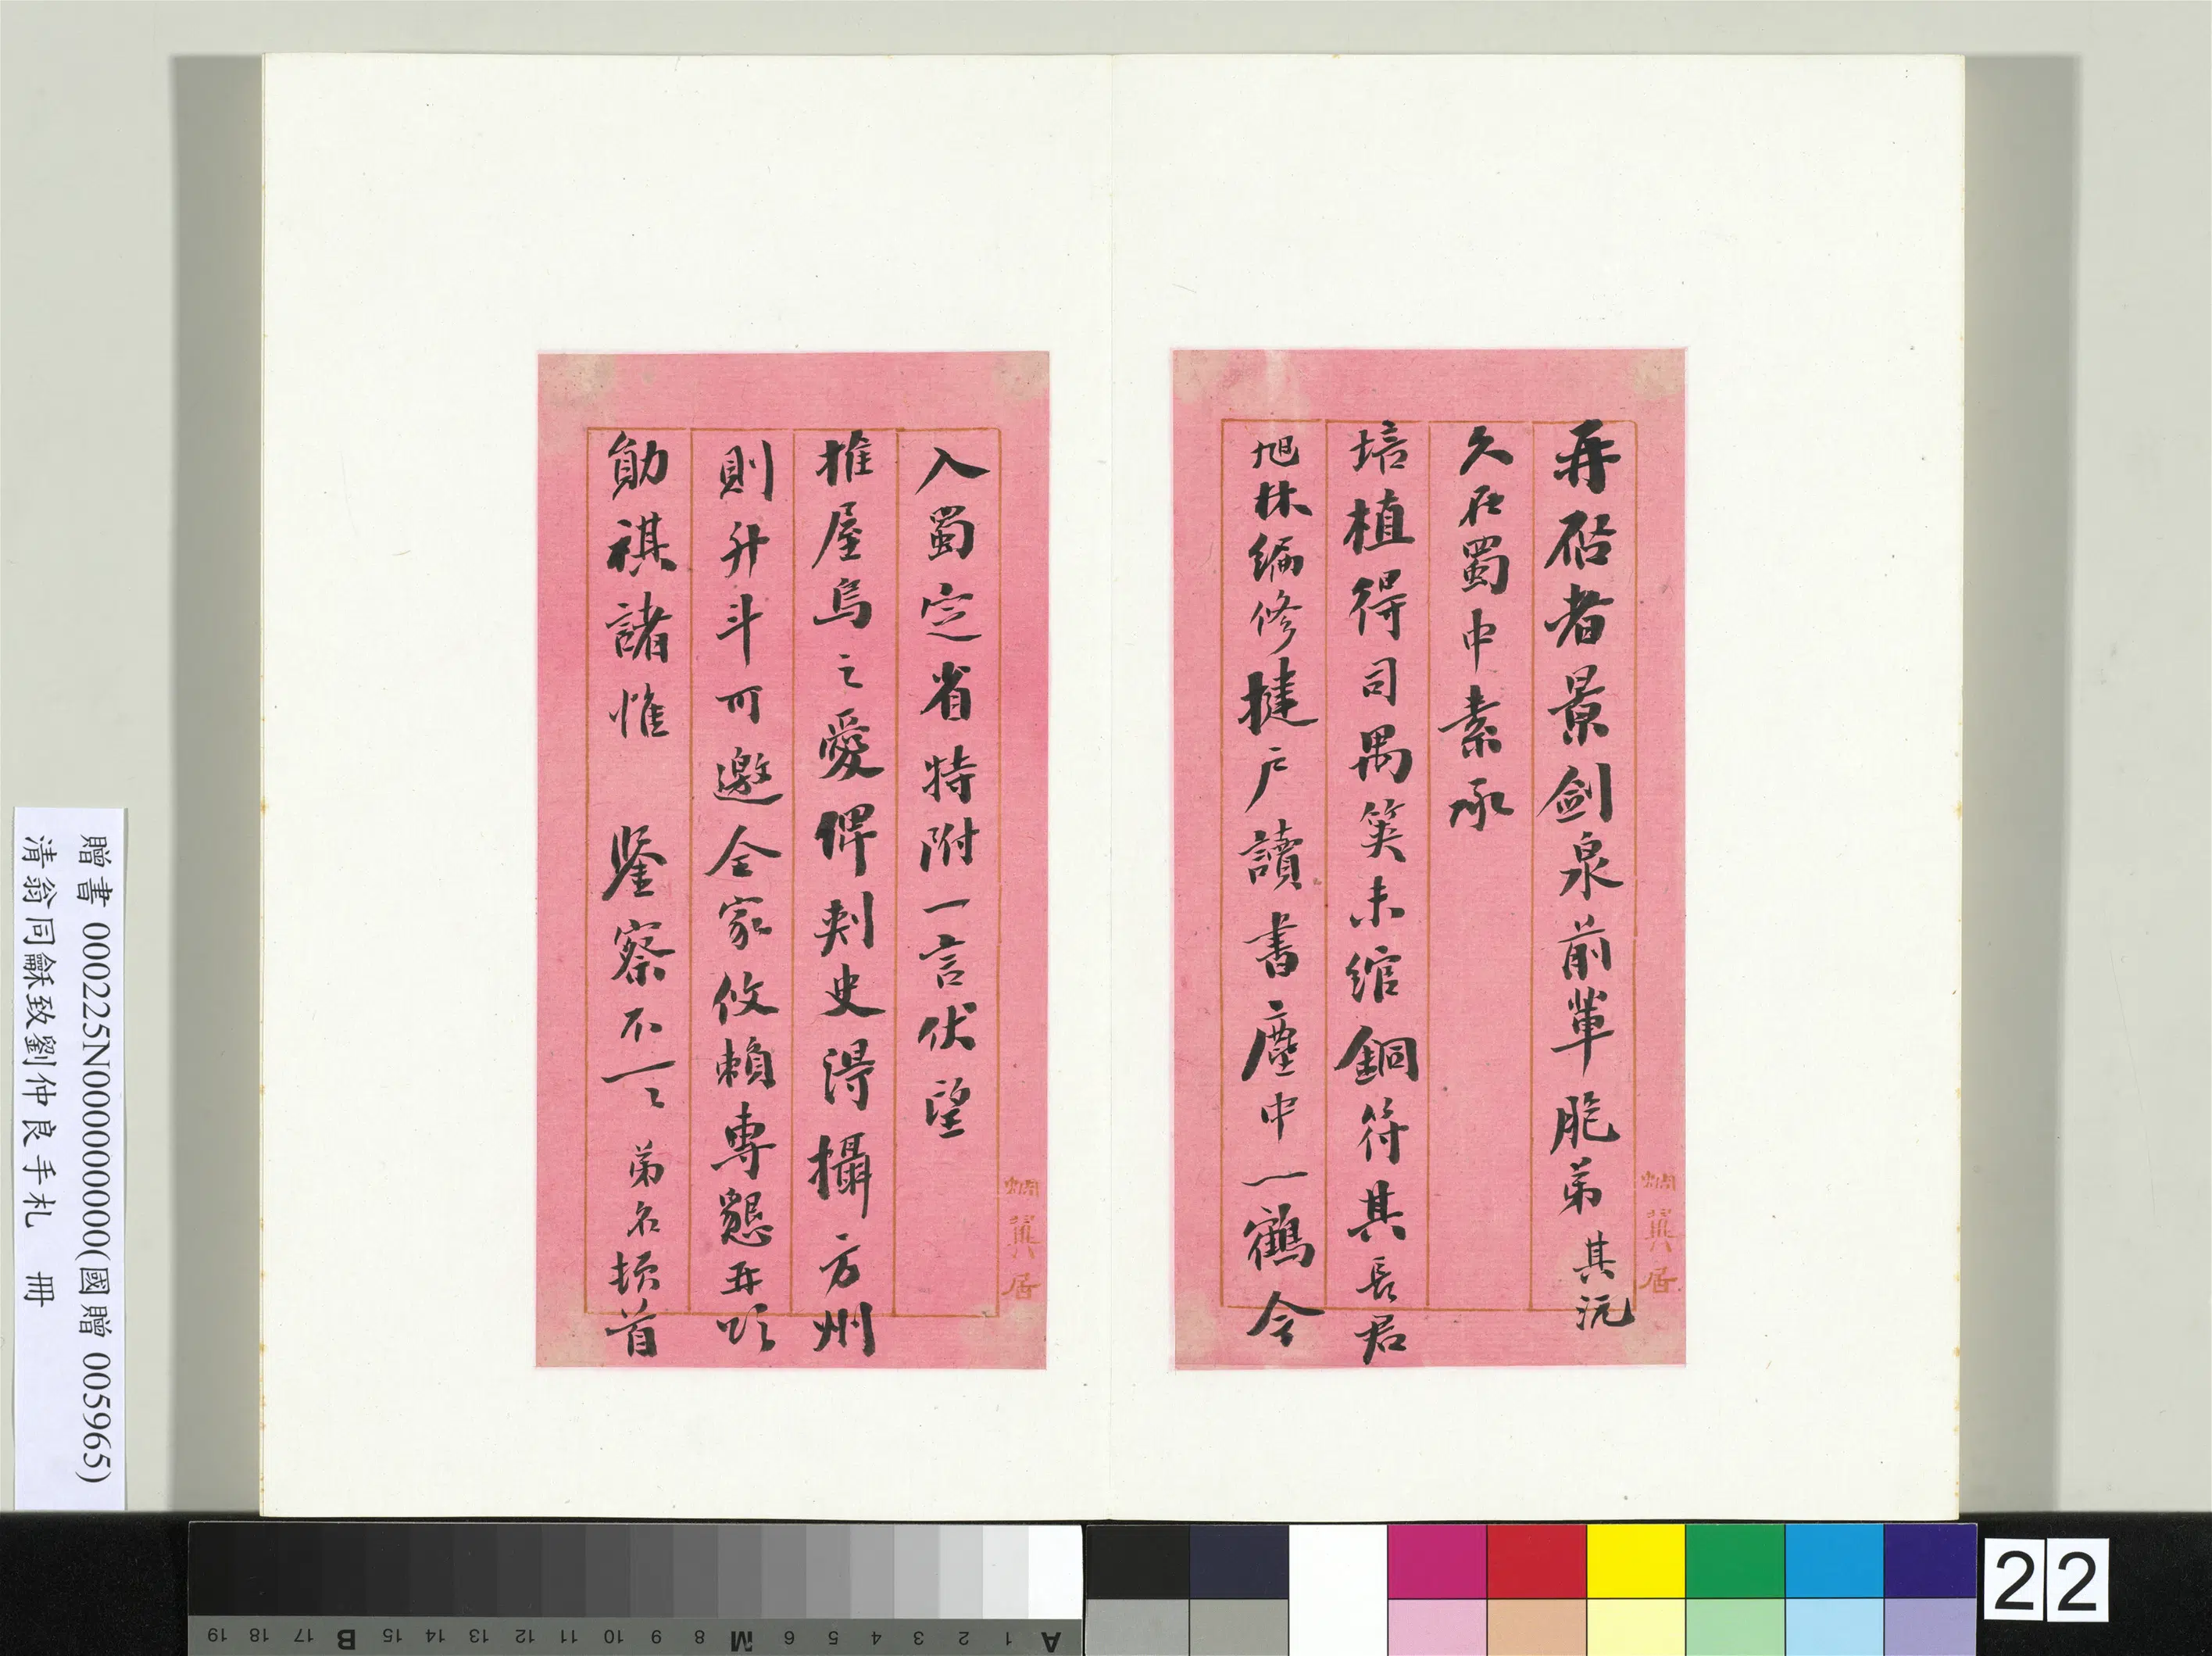 再啟者景劍泉前輩胞弟其沅
久在蜀中素承
培植得司禺筴未綰銅符其長君
旭林編修揵戶讀書廛中一鶴令
入蜀定省特附一言伏望
推屋烏之愛俾刺史得攝方州
則升斗可邀全家攸賴專懇再頌
勛祺諸惟 鑒察不一〻弟名頓首
蜩蓂居
蜩蓂居
贈書 000225N000000000(國贈 005965)
清翁同龢致劉仲良手札 冊
A 1 2 3 4 5 6 M 8 9 10 11 12 13 14 15 B 17 18 19
22